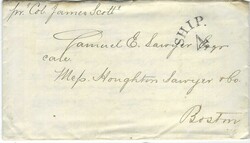 pr. Col. James Scott
SHIP.
Samuel E. Sawyer Esqr
care
Mess Houghton Sawyer & Co
Boston